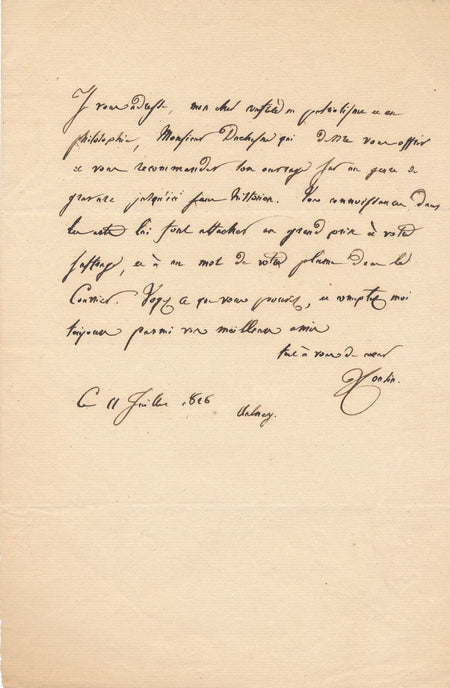 Je vous adresse, mon cher confrère en patriotisme et en
philosophie, Monsieur Duchesne qui désire vous offrir
et vous recommander son ouvrage sur un genre de
gravure jusqu'ici sans historien. Vos connoissances dans
les arts lui font attacher un grand prix à votre
suffrage, et à un mot de votre plume dans le
Courrier. Voyez ce que vous pouvez, et comptez moi
toujours parmi vos meilleurs amis
tout à vous de cœur
Ce 11 Juillet 1826
Aulnay.